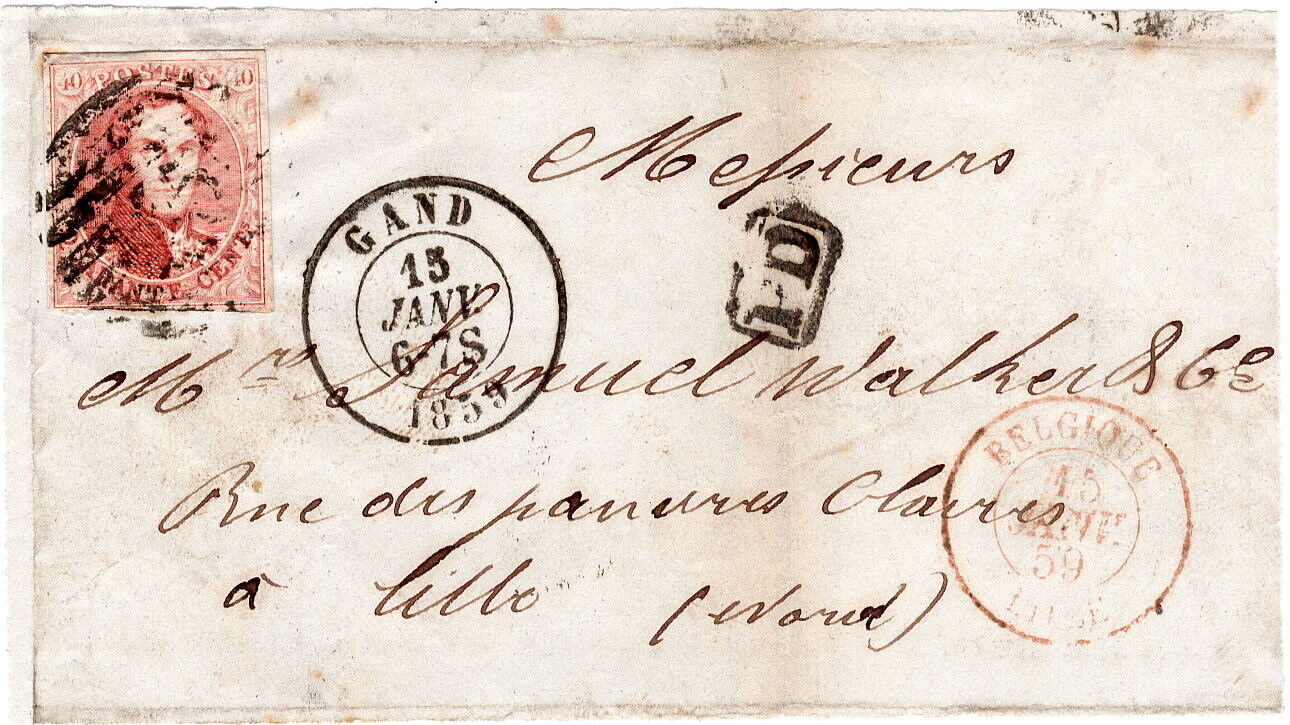 40 POSTES 40
QUARANTE CENT.
GAND
15
JANV.
6-7S
1859
PD
Messieurs
Mrs Samuel Walker & Ce
Rue des pauvres Claires
à Lille (Nord)
BELGIQUE
15
JANV.
59
LILLE